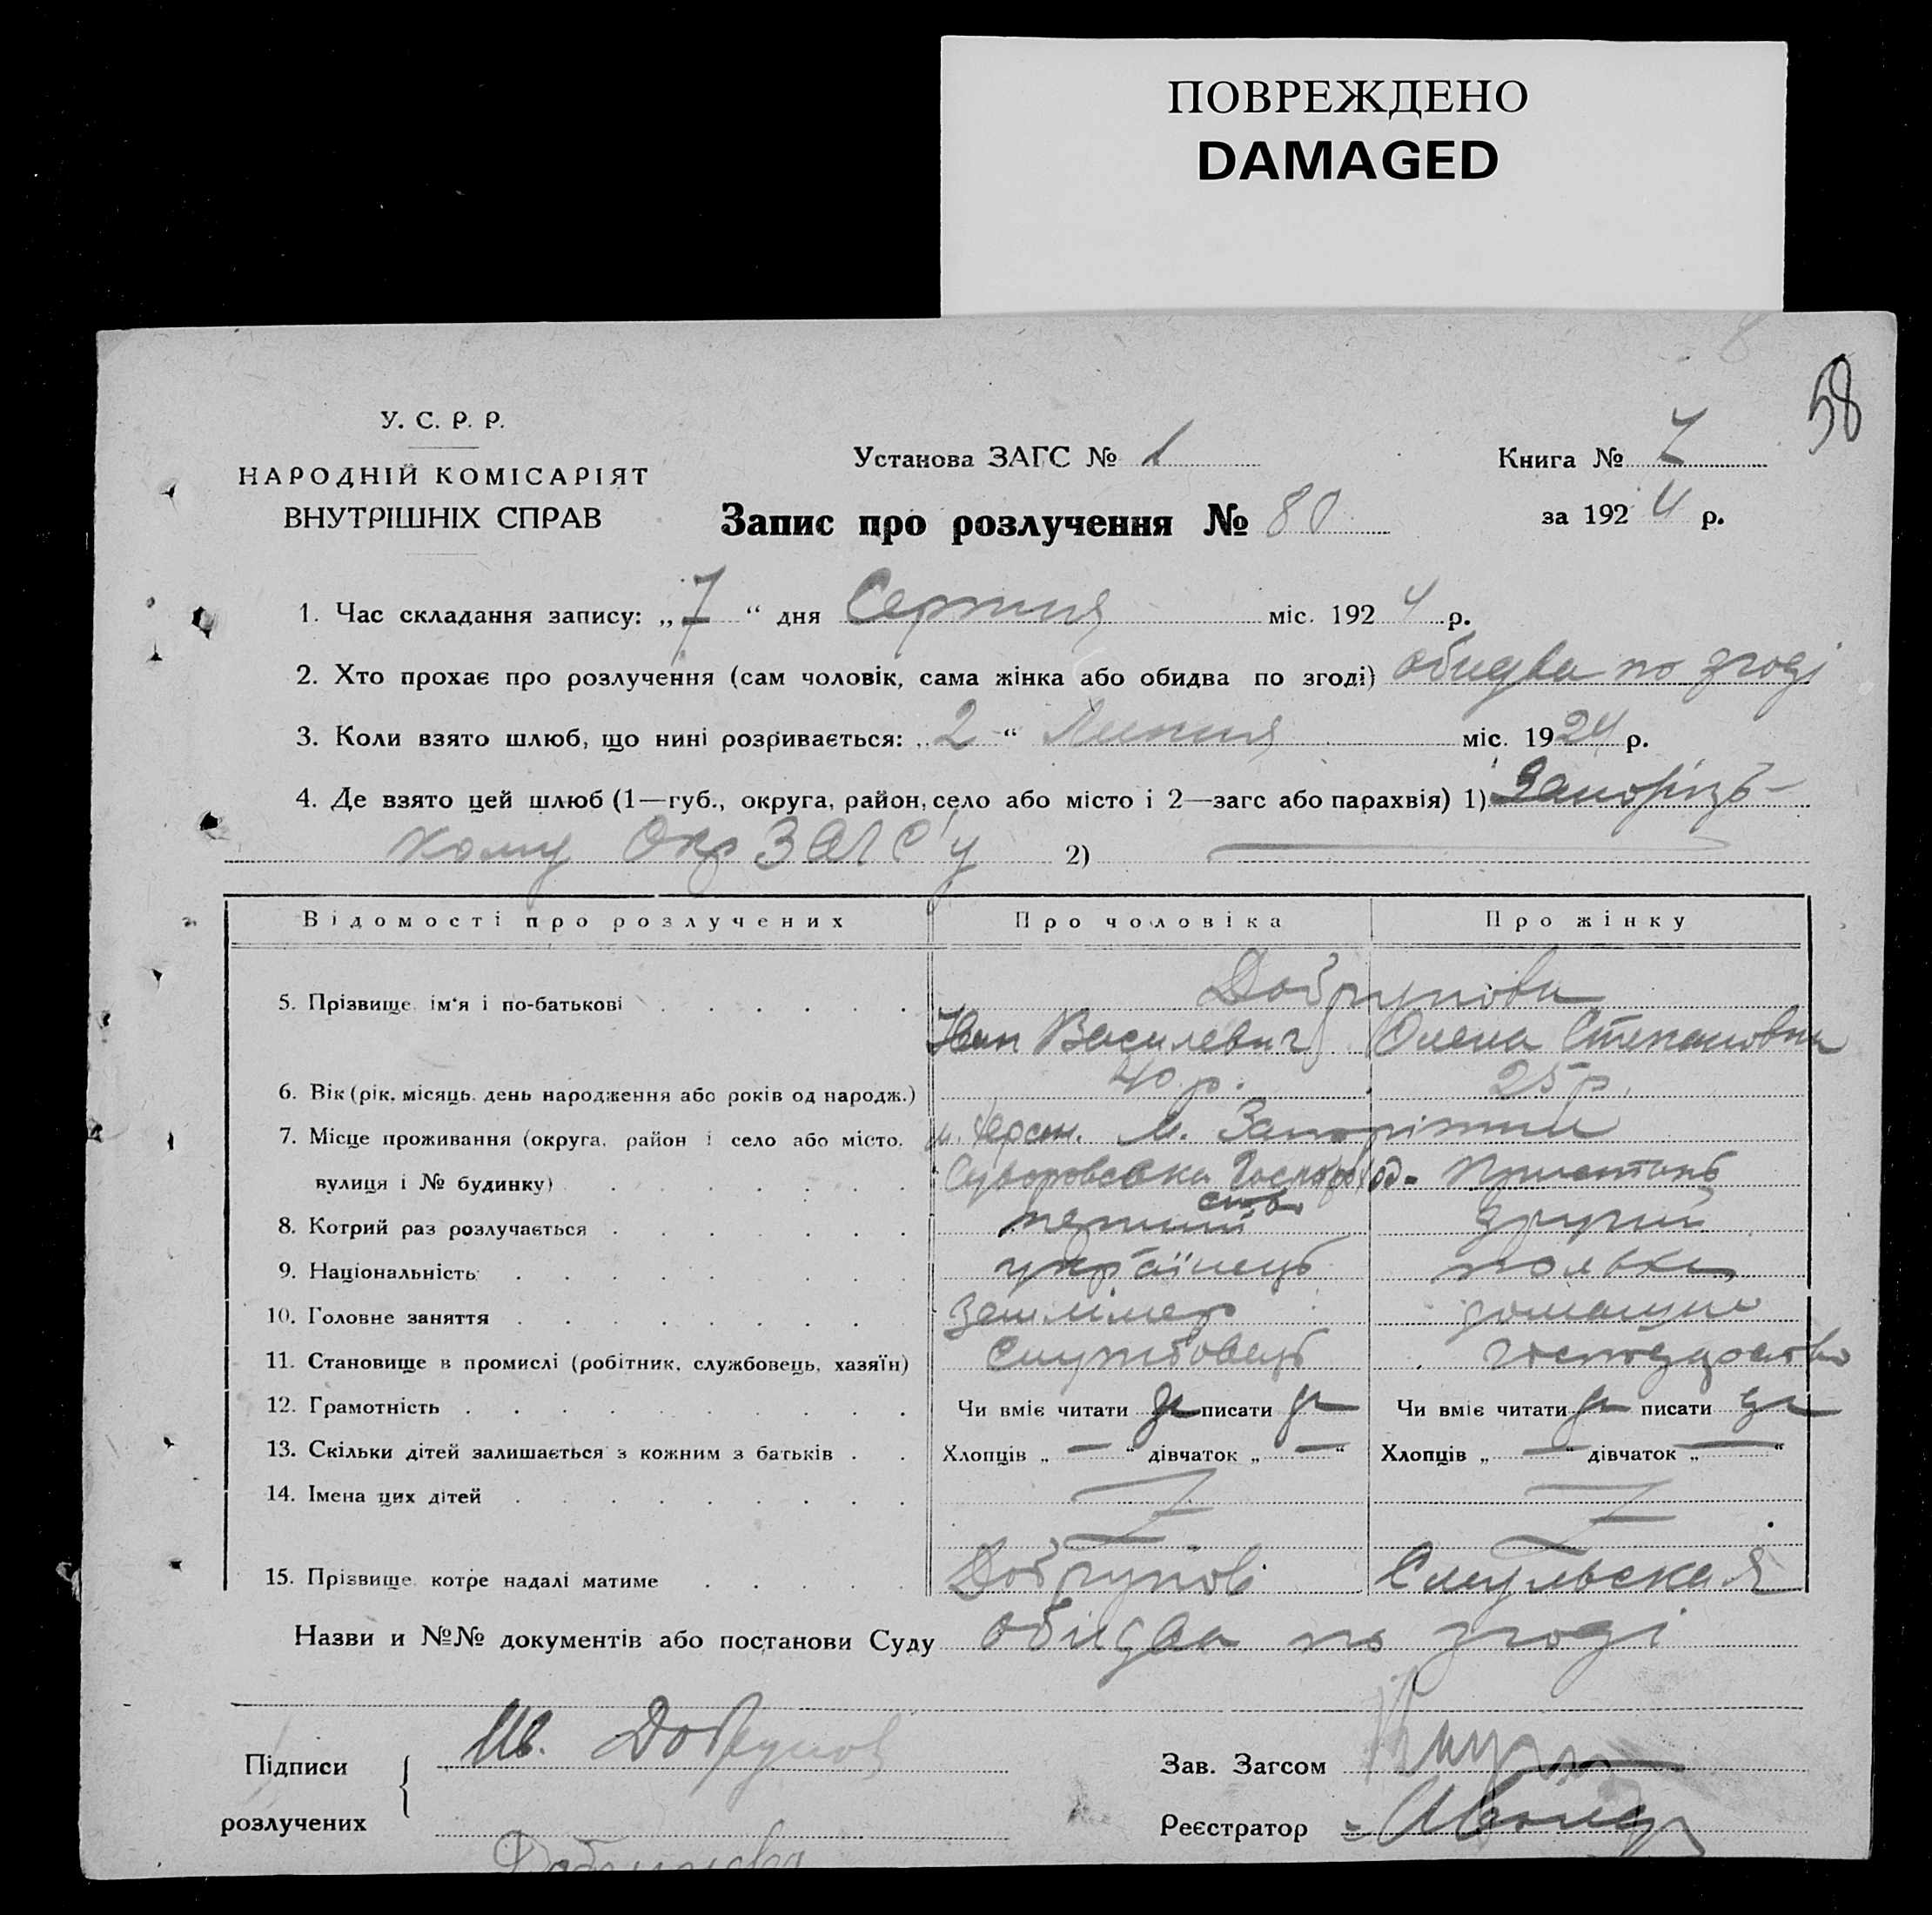 ПОВРЕЖДЕНО
DAMAGED
58
У. С. Р. Р.
НАРОДНІЙ КОМІСАРІЯТ
ВНУТРІШНІХ СПРАВ
Установа ЗАГС № 1
Книга № 7
за 1924 р.
Запис про розлучення № 80
1. Час складання запису: „7“ дня Серпня міс. 1924 р.
2. Хто прохає про розлучення (сам чоловік, сама жінка або обидва по згоді) обидва по згоді
3. Коли взято шлюб, що нині розривається: „2“ Липня міс. 1924 р.
4. Де взято цей шлюб (1—губ., округа, район, село або місто і 2—загс або парахвія) 1) Запорізь-
кому Окр ЗАГС'у 2) —
Відомості про розлучених Про чоловіка Про жінку
5. Прізвище, ім'я і по-батькові Добрунови
Іван Василевич Олена Степановна
6. Вік (рік, місяць, день народження або років од народж.) 40 р. 25 р.
7. Місце проживання (округа, район і село або місто, м. Херсон. м. Запоріжжя
вулиця і № будинку)
8. Котрий раз розлучається перший другий
9. Національність українець полька
10. Головне заняття Землімер домашнє
11. Становище в промислі (робітник, службовець, хазяїн) Службовець господарство
12. Грамотність Чи вміє читати да писати да Чи вміє читати да писати да
13. Скільки дітей залишається з кожним з батьків Хлопців „ — “ дівчаток „ — “ Хлопців „ — “ дівчаток „ — “
14. Імена цих дітей
15. Прізвище, котре надалі матиме Добрунов Смульская
Назви и №№ документів або постанови Суду обидва по згоді
Підписи
розлучених
Ив. Добрунов
Зав. Загсом
Реєстратор